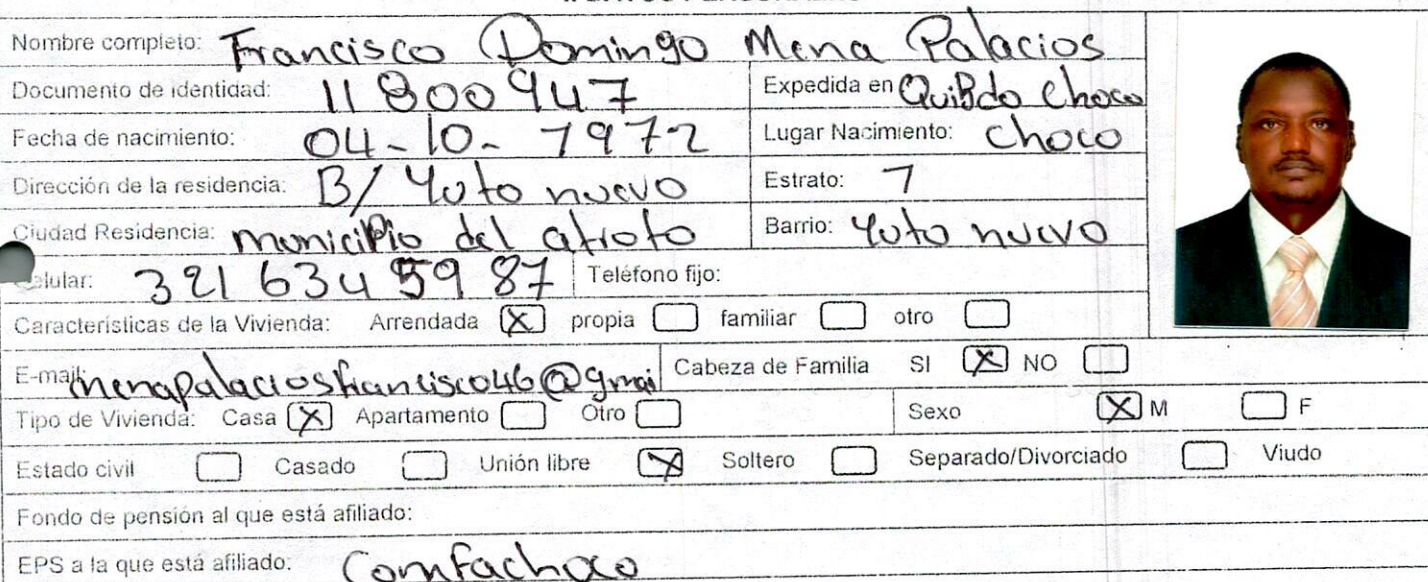 Nombre completo: Francisco Domingo Mena Palacios
Documento de identidad: 11800947 Expedida en QuiBdo Choco
Fecha de nacimiento: 04-10-1972 Lugar Nacimiento: Choco
Dirección de la residencia: B/ Yuto nuevo Estrato: 1
Ciudad Residencia: municiPio del atrato Barrio: Yuto nuevo
elular: 321 634 59 87 Teléfono fijo:
Características de la Vivienda: Arrendada X propia familiar otro
E-mail: menapalaciosfrancisco46@gmai Cabeza de Familia SI X NO
Tipo de Vivienda: Casa X Apartamento Otro Sexo X M F
Estado civil Casado Unión libre X Soltero Separado/Divorciado Viudo
Fondo de pensión al que está afiliado:
EPS a la que está afiliado: Comfachoco